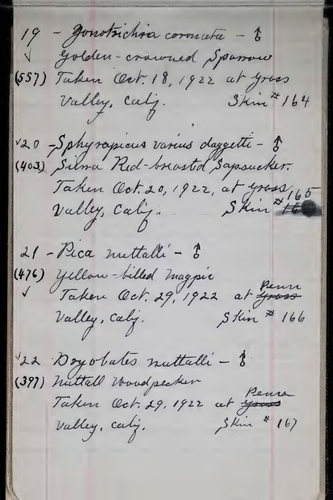 19 - Zonotrichia coronata - ♂
✓ Golden-crowned Sparrow
(557) Taken Oct. 18, 1922 at Grass
Valley, Calif. Skin # 164
✓20 - Sphyrapicus varius daggetti - ♂
(403) Sierra Red-breasted Sapsucker.
Taken Oct. 20, 1922, at Grass
Valley, Calif. Skin # 165
21 - Pica nuttalli - ♂
(476) Yellow-billed Magpie
✓ Taken Oct. 29, 1922 at Grass Penn
Valley, Calif. Skin # 166
✓22 - Dryobates nuttalli - ♂
(397) Nuttall Woodpecker
Taken Oct. 29, 1922 at Grass Penn
Valley, Calif. Skin # 167